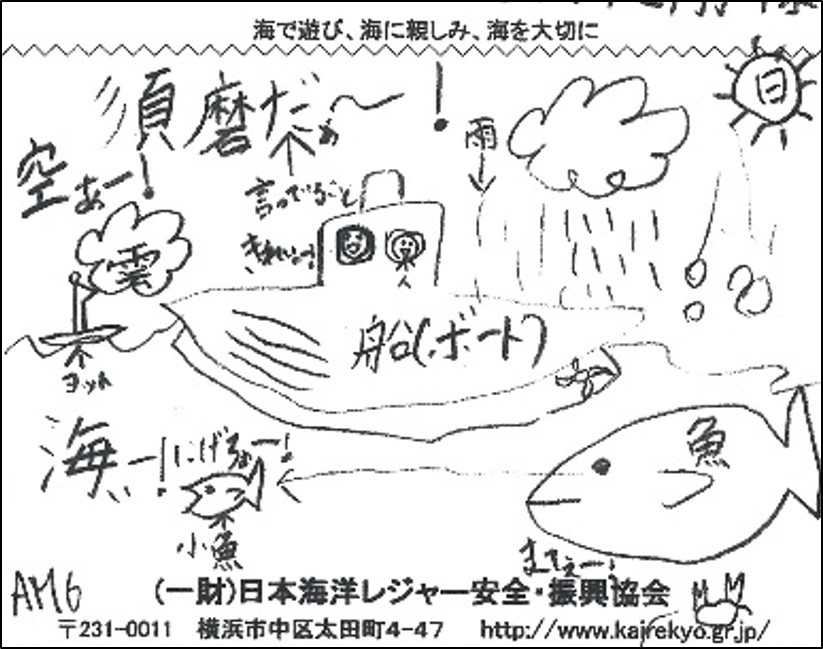 海で遊び、海に親しみ、海を大切に
須磨だぁ〜！
日
雨
空ぁー！
言ってること
きれいっ！
雲
人
船(ボート)
ヨット
海ーぃ！
にげろー！
魚
小魚
まてぇー！
AM6
(一財)日本海洋レジャー安全・振興協会
〒231-0011 横浜市中区太田町4-47 http://www.kairekyo.gr.jp/